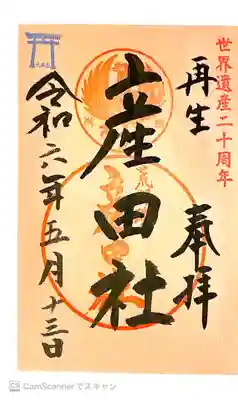 世界遺産二十周年
再生 奉拝
産田社
令和六年五月十三日
CS CamScannerでスキャン